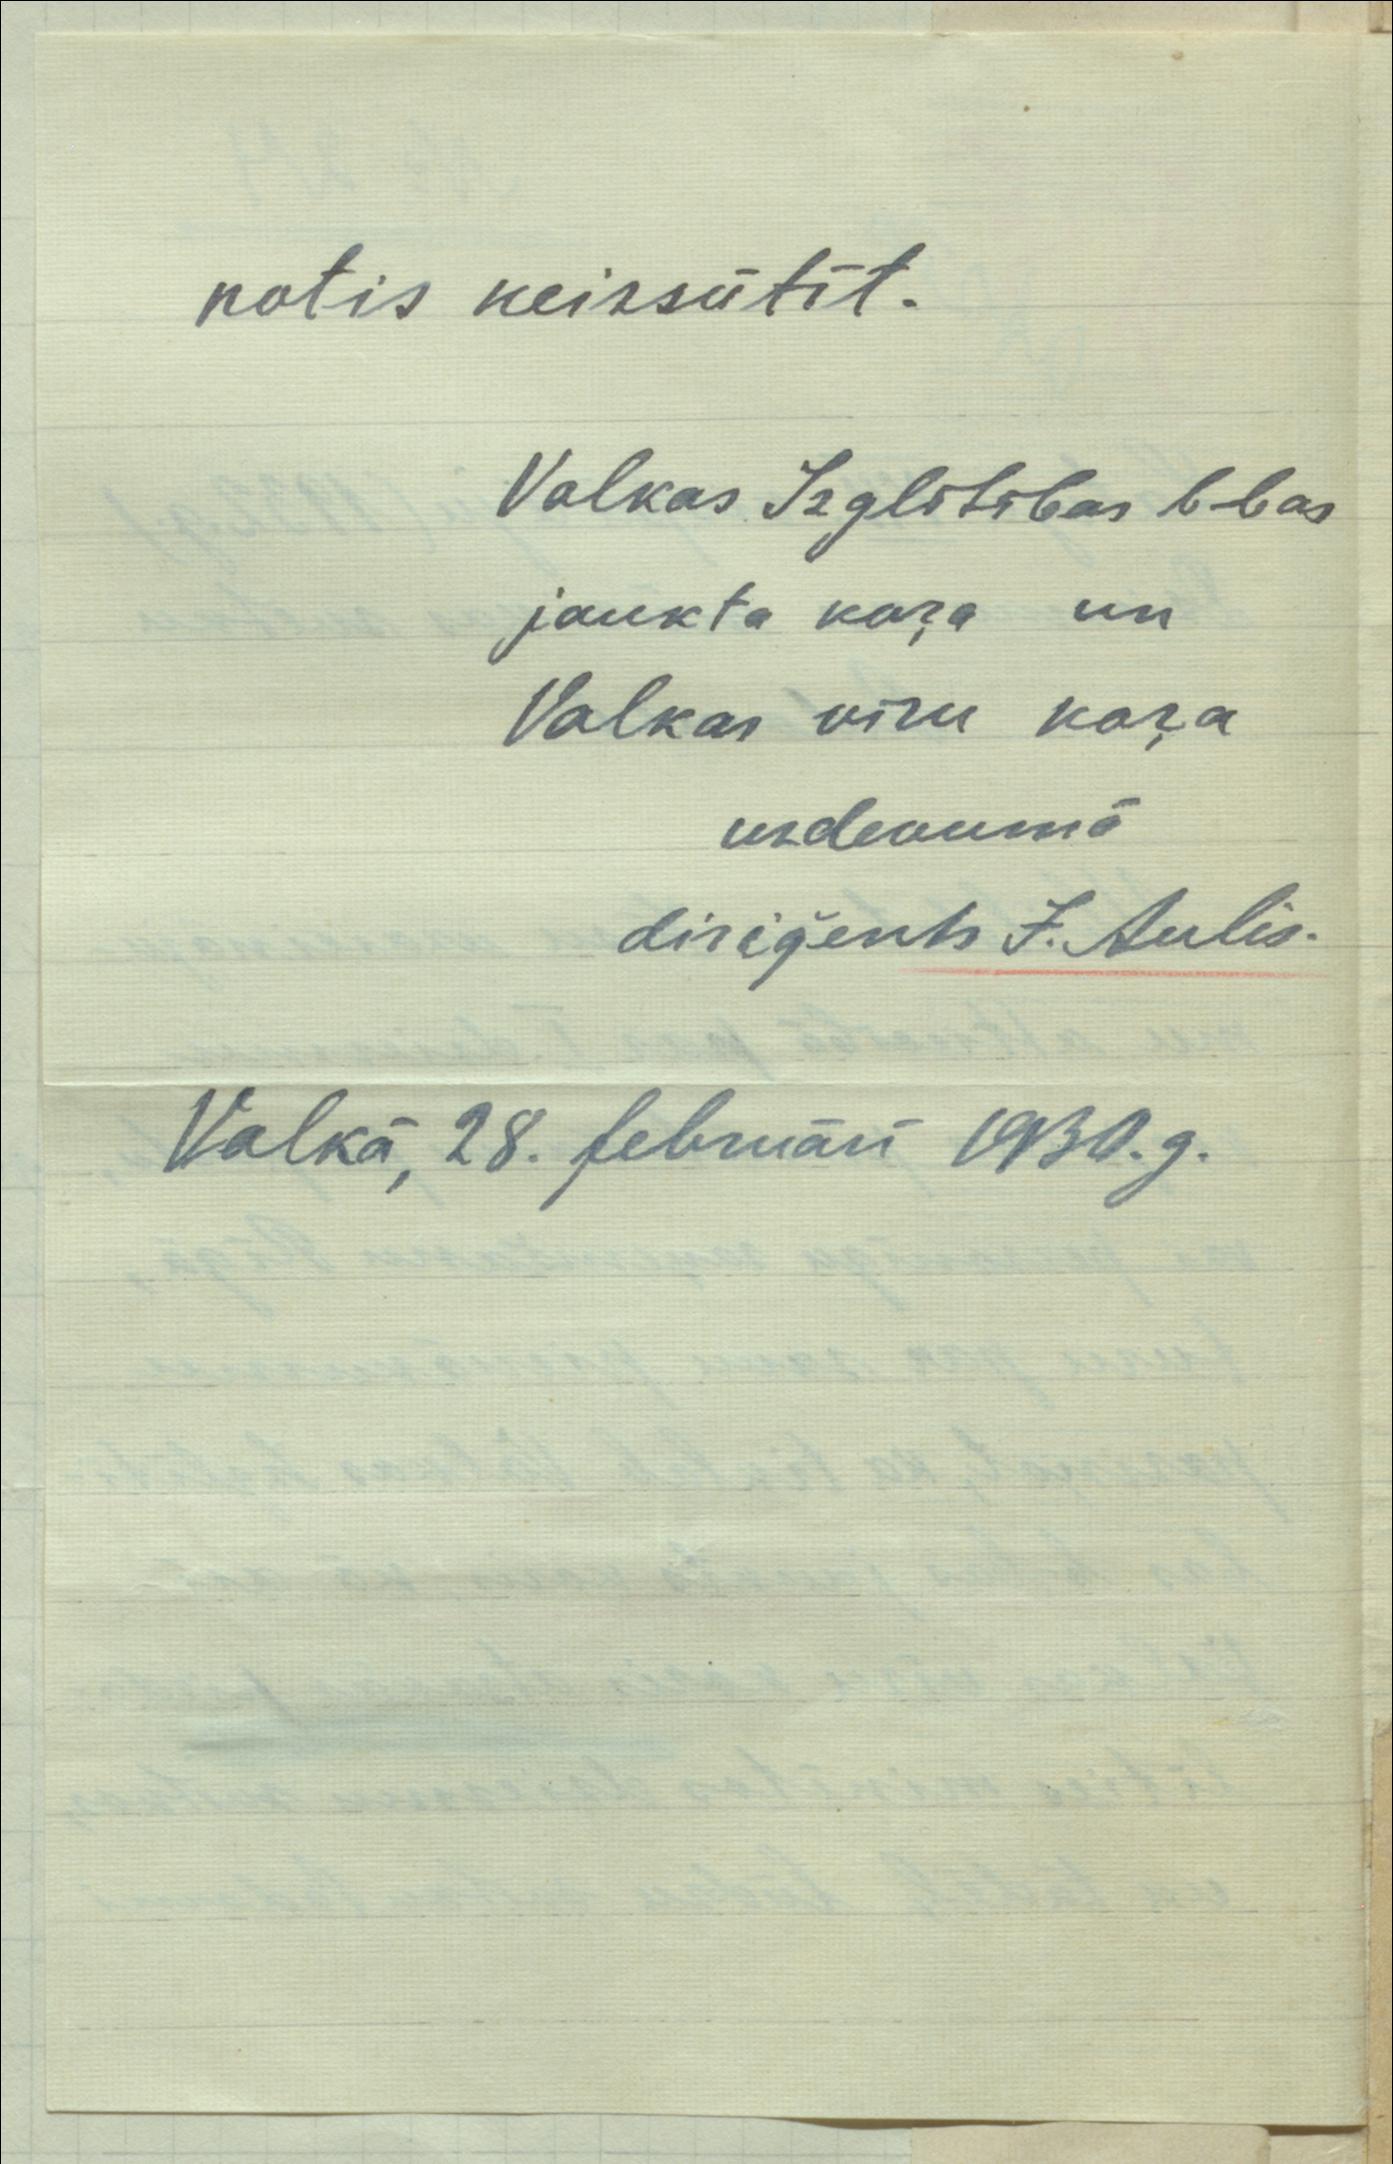 notis neizsūtīt.
Valkas Izglītības b-bas
jaukta koŗa un
Valkas vīru koŗa
uzdevumā
diriģents J. Aulis.
Valkā, 28. februārī 1930. g.